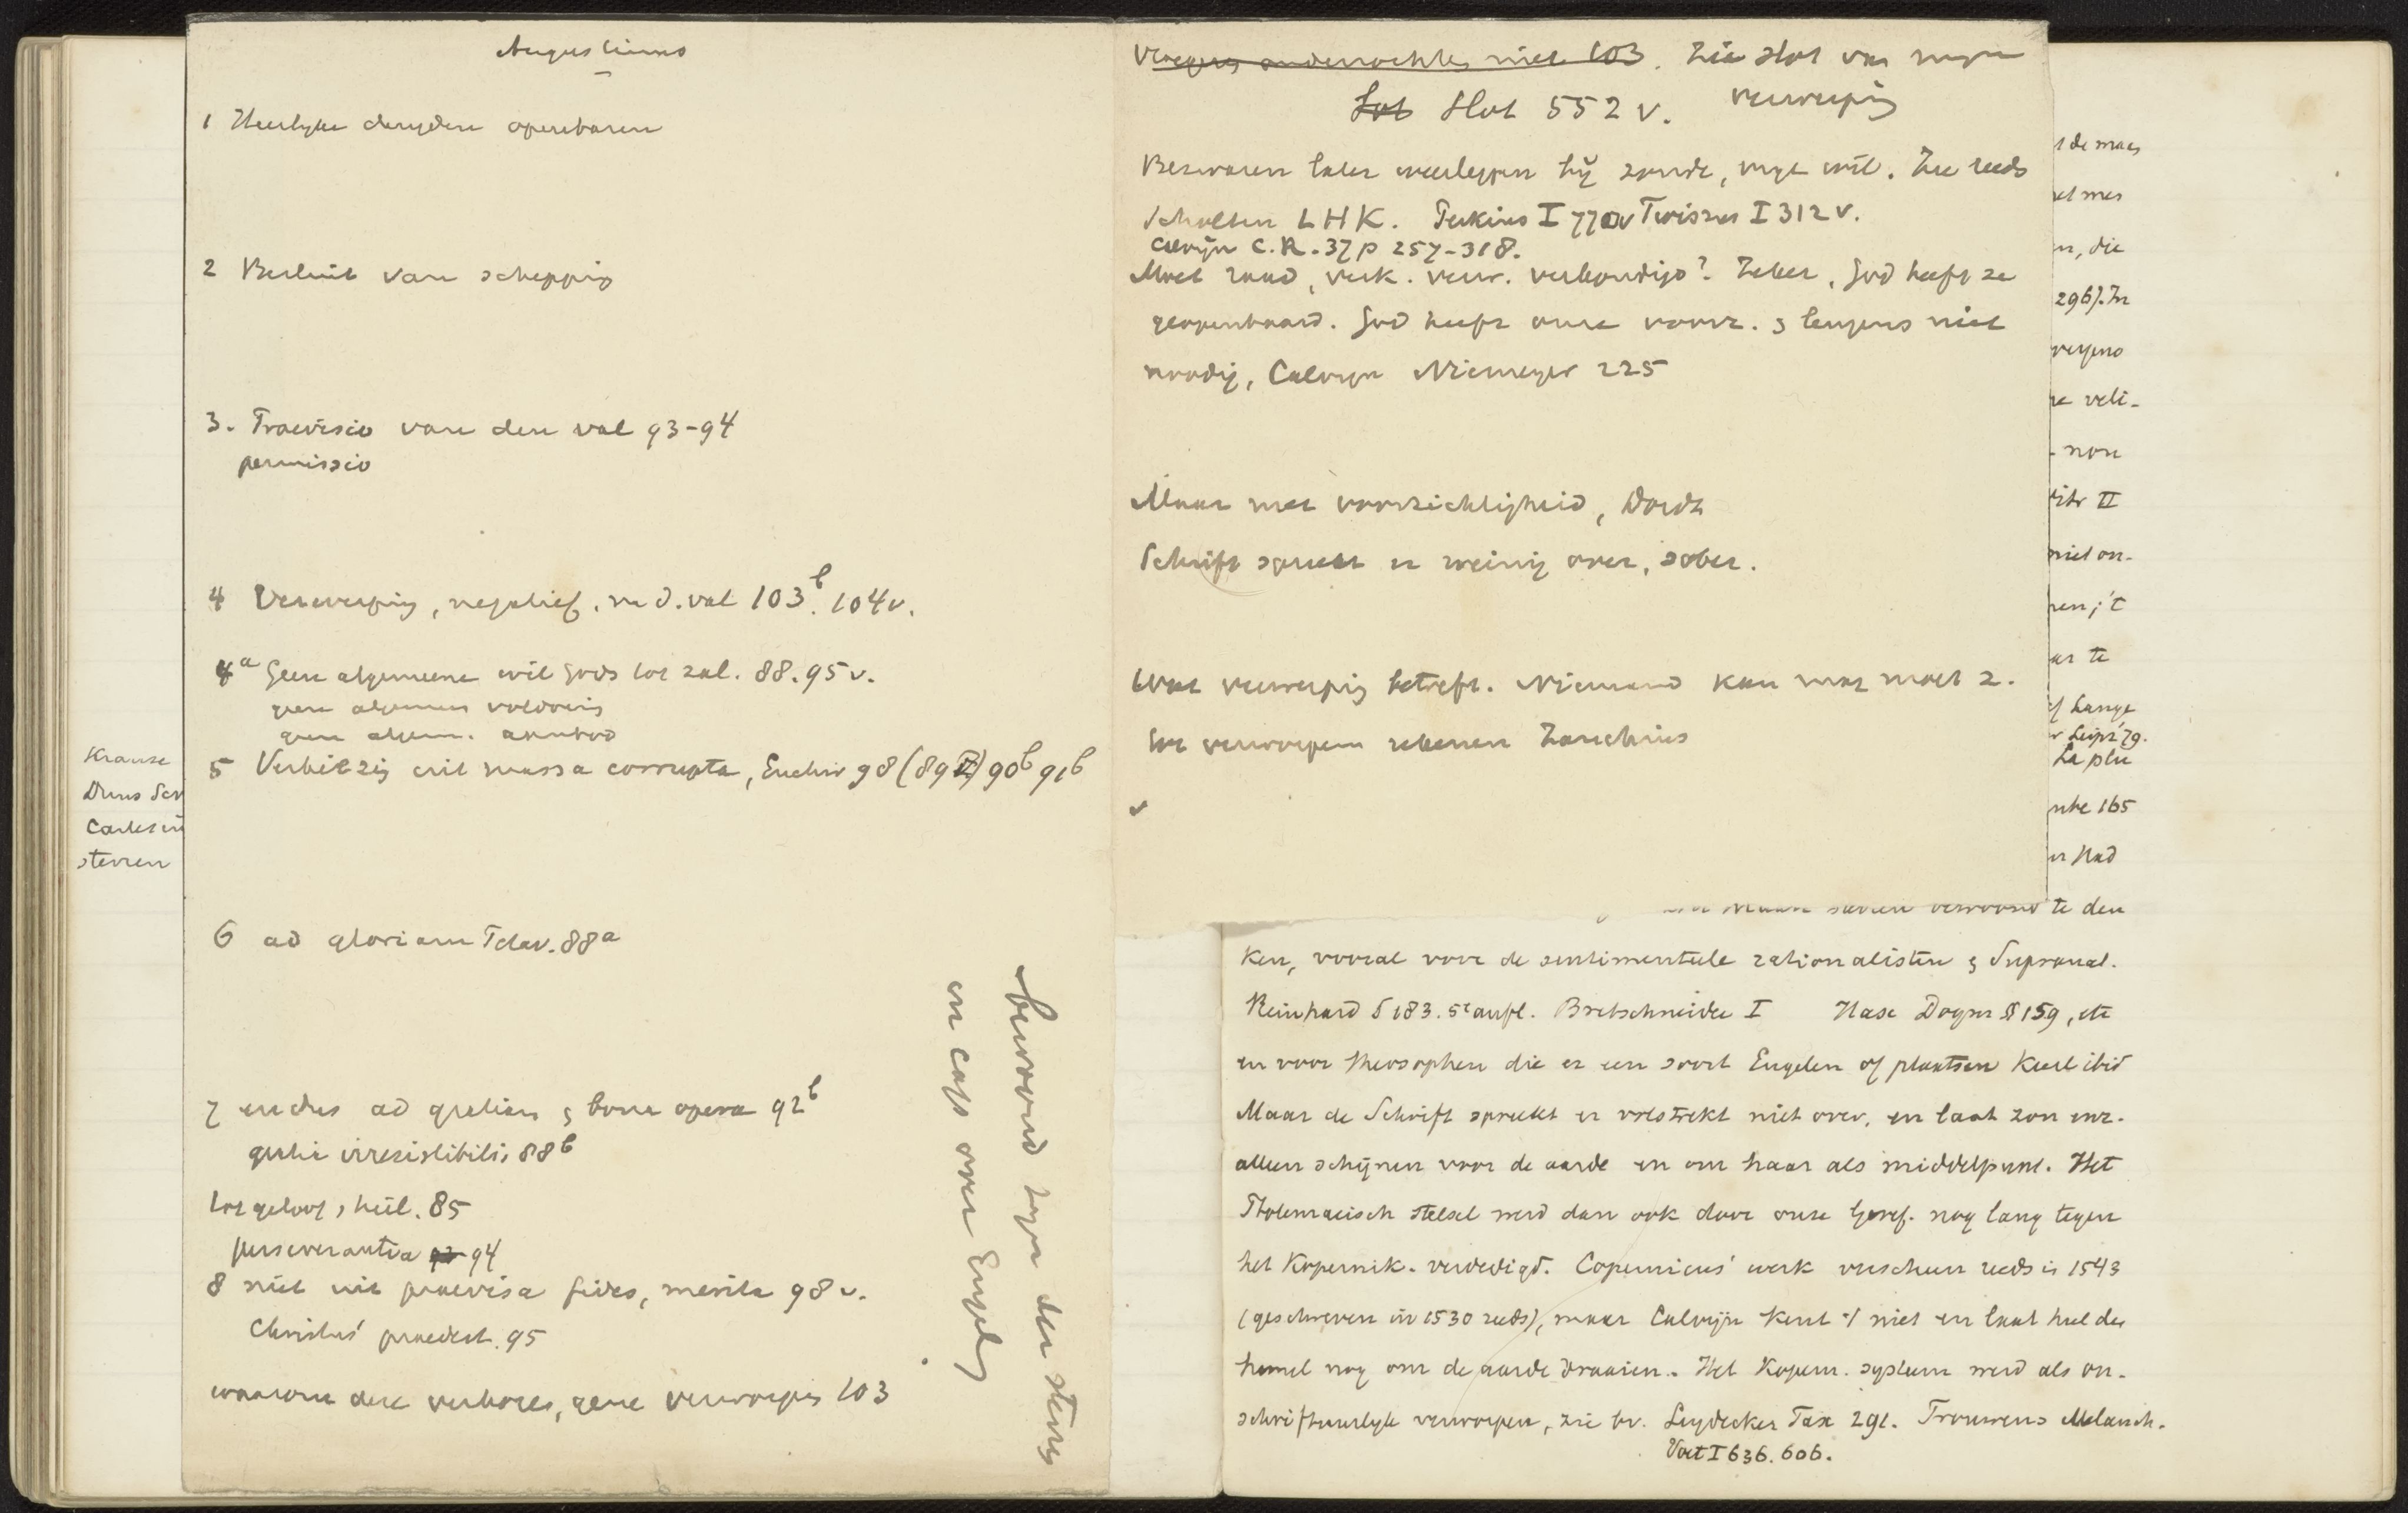 Augustinus
1 Heerlyke deugden openbaren
2 Besluit van schepping
3. Praevisio van den val 93-94
permissio
4 Verwerping, negatief. na d. val 103b. 104v.
4a Geen algemeene wil Gods tot zal. 88. 95v.
geen algemeen voldoening
geen algem. aanbod
5 Verkiezing uit massa corrupta, Enchir 98 (89 II) 90b 91b
6 ad gloriam Dei 88a
7 ad gratiam & bona opera 92b
gratia irresistibilis 88b
tot geloof, heil. 85
perseverantia 94
8 niet uit praevisa fides, merita 98v.
Christus' praedest. 95
waarom deze verkoren, gene verworpen 103
bewoond zijn der sterren
in cap over Engelen
Krause
Duns Sco
Cartesiu
sterren
Verwerping onderzochte niet 103. Zie slot van
verwerping
Tot Slot 552 v.
Bezwaren later weerleggen bij zonde, vrye wil. Zie reeds
Scholten LHK. Perkins I 770v Twissus I 312 v.
Calvijn C.R. 37 p 257-318.
Moet raad, verk. verw. verkondigd? Zeker, God heeft ze
geopenbaard. God heeft onze voorz. & leugens niet
noodig, Calvyn Niemeyer 225
Maar met voorzichtigheid, Dordt
Schrift spreekt er weinig over, sober.
Wat verwerping betreft. Niemand kan mag moet z.
tot verworpenen rekenen Zanchius
t de maan
et men
n, die
296). In
re veli-
- non
II
niet on-
pen; 't
ar te
Lange
Leipz '79.
La plu
165
en Had
te den
ken, vooral voor de sentimenteele rationalisten & Supranat.
Reinhard § 183. 5e aufl. Bretschneider I Hase Dogm § 159, etc
en voor theosophen die er een soort Engelen of plaatsen Kurtz ibid
Maar de Schrift spreekt er volstrekt niet over, en laat zon enz.
alleen schijnen voor de aarde en om haar als middelpunt. Het
Ptolemaeisch stelsel werd dan ook door onze Geref. nog lang tegen
het Kopernik. verdedigd. Copernicus' werk verscheen reeds in 1543
(geschreven in 1530 reeds), maar Calvijn kent 't niet en laat heel den
hemel nog om de aarde draaien. Het Kopern. systeem werd als on-
schriftuurlyk verworpen, zie bv. Leydecker Fax 291. Trouwens Melanch.
Voet I 636. 606.